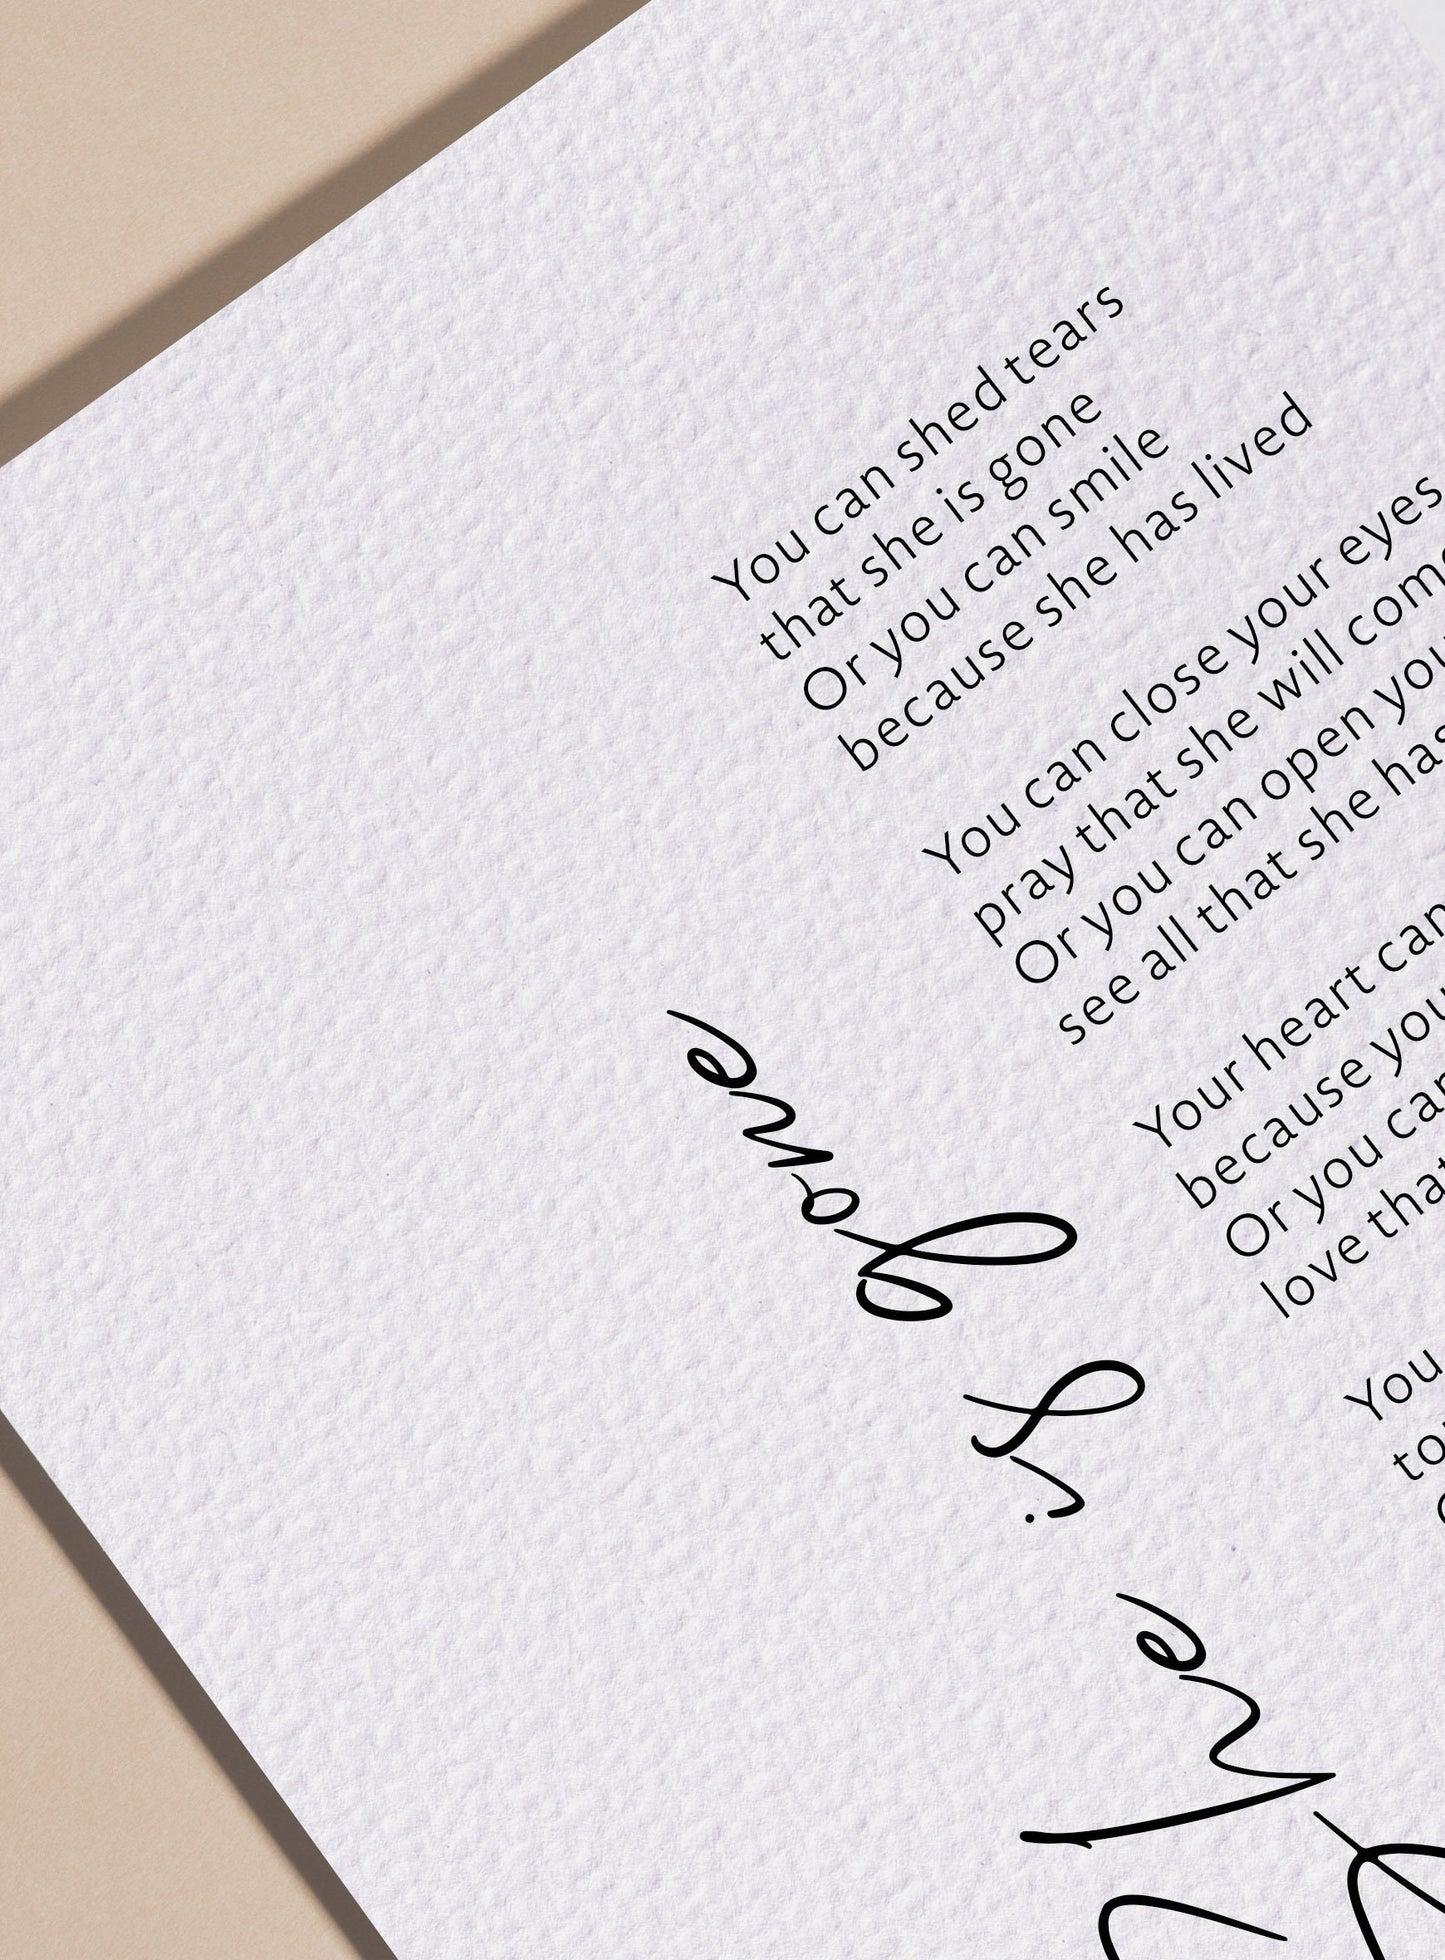 She is gone
You can shed tears
that she is gone
Or you can smile
because she has lived
You can close your eyes
pray that she will come
Or you can open you
see all that she has
Your heart can
because you
Or you can
love that
You